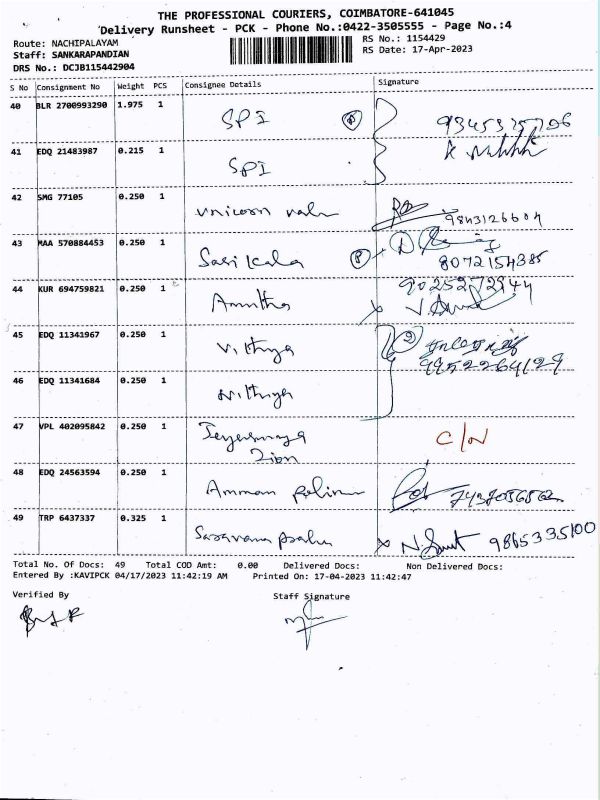 THE PROFESSIONAL COURIERS, COIMBATORE-641045
Delivery Runsheet - PCK - Phone No.:0422-3505555 - Page No.:4
Route: NACHIPALAYAM RS No.: 1154429
Staff: SANKARAPANDIAN RS Date: 17-Apr-2023
DRS No.: DCJB115442904
S No Consignment No Weight PCS Consignee Details Signature
40 BLR 2700993290 1.975 1 SPI
41 EDQ 21483987 0.215 1 SPI
42 SMG 77105 0.250 1 unicorn 9843126604
43 MAA 570884453 0.250 1 Sasikala 8072154385
44 KUR 694759821 0.250 1 Amutha 9025272944
45 EDQ 11341967 0.250 1 Vithya 9952264129
46 EDQ 11341684 0.250 1 Nithya
47 VPL 402095842 0.250 1 C/N
Zion
48 EDQ 24563594 0.250 1 Amman
49 TRP 6437337 0.325 1 Saravana 9865335100
Total No. Of Docs: 49 Total COD Amt: 0.00 Delivered Docs: Non Delivered Docs:
Entered By :KAVIPCK 04/17/2023 11:42:19 AM Printed On: 17-04-2023 11:42:47
Verified By Staff Signature